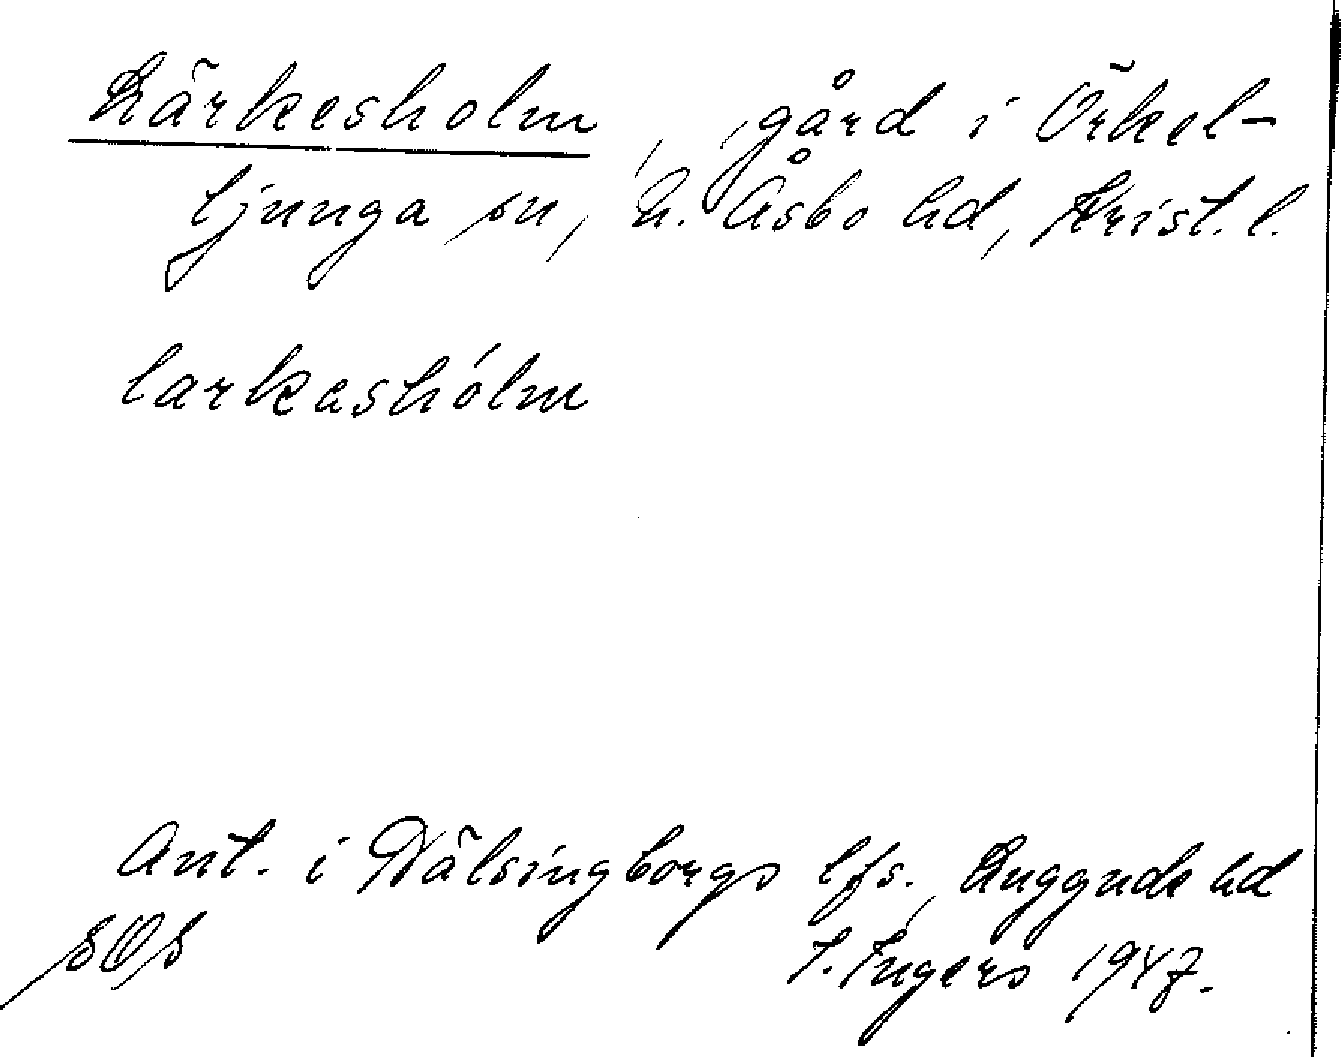 Lärkesholm, gård i Örkel-
ljunga sn, N. Åsbo hd, Krist. l.
larkashólm
Ant. i Hälsingborgs lfs., Luggude hd
I. Ingers 1947.